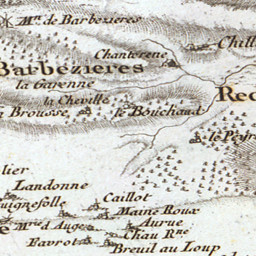 Mn. de Barbezieres
Chanterene
Chill
Barbezieres
la Garenne
la Cheville
Brousse
le Bouchaud
Rec
le Peyra
lier
Landonne
uignefolle
Caillot
Maine Roux
Mrie d'Auge
Aurue
Chau Rne
Favrot
Breuil au Loup